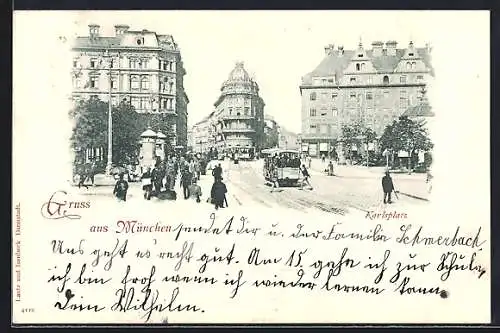 Gruss
aus München
Karlsplatz.
sendet Dir u. der Familie Schmerbach
Uns geht es recht gut. Am 15. gehe ich zur Schule,
ich bin froh wenn ich wieder lernen kann.
Dein Wilhelm.
Lautz und Isenbeck Darmstadt.